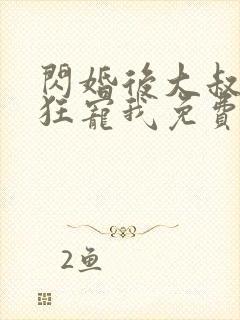 閃婚後大叔
狂寵我免費
2鱼